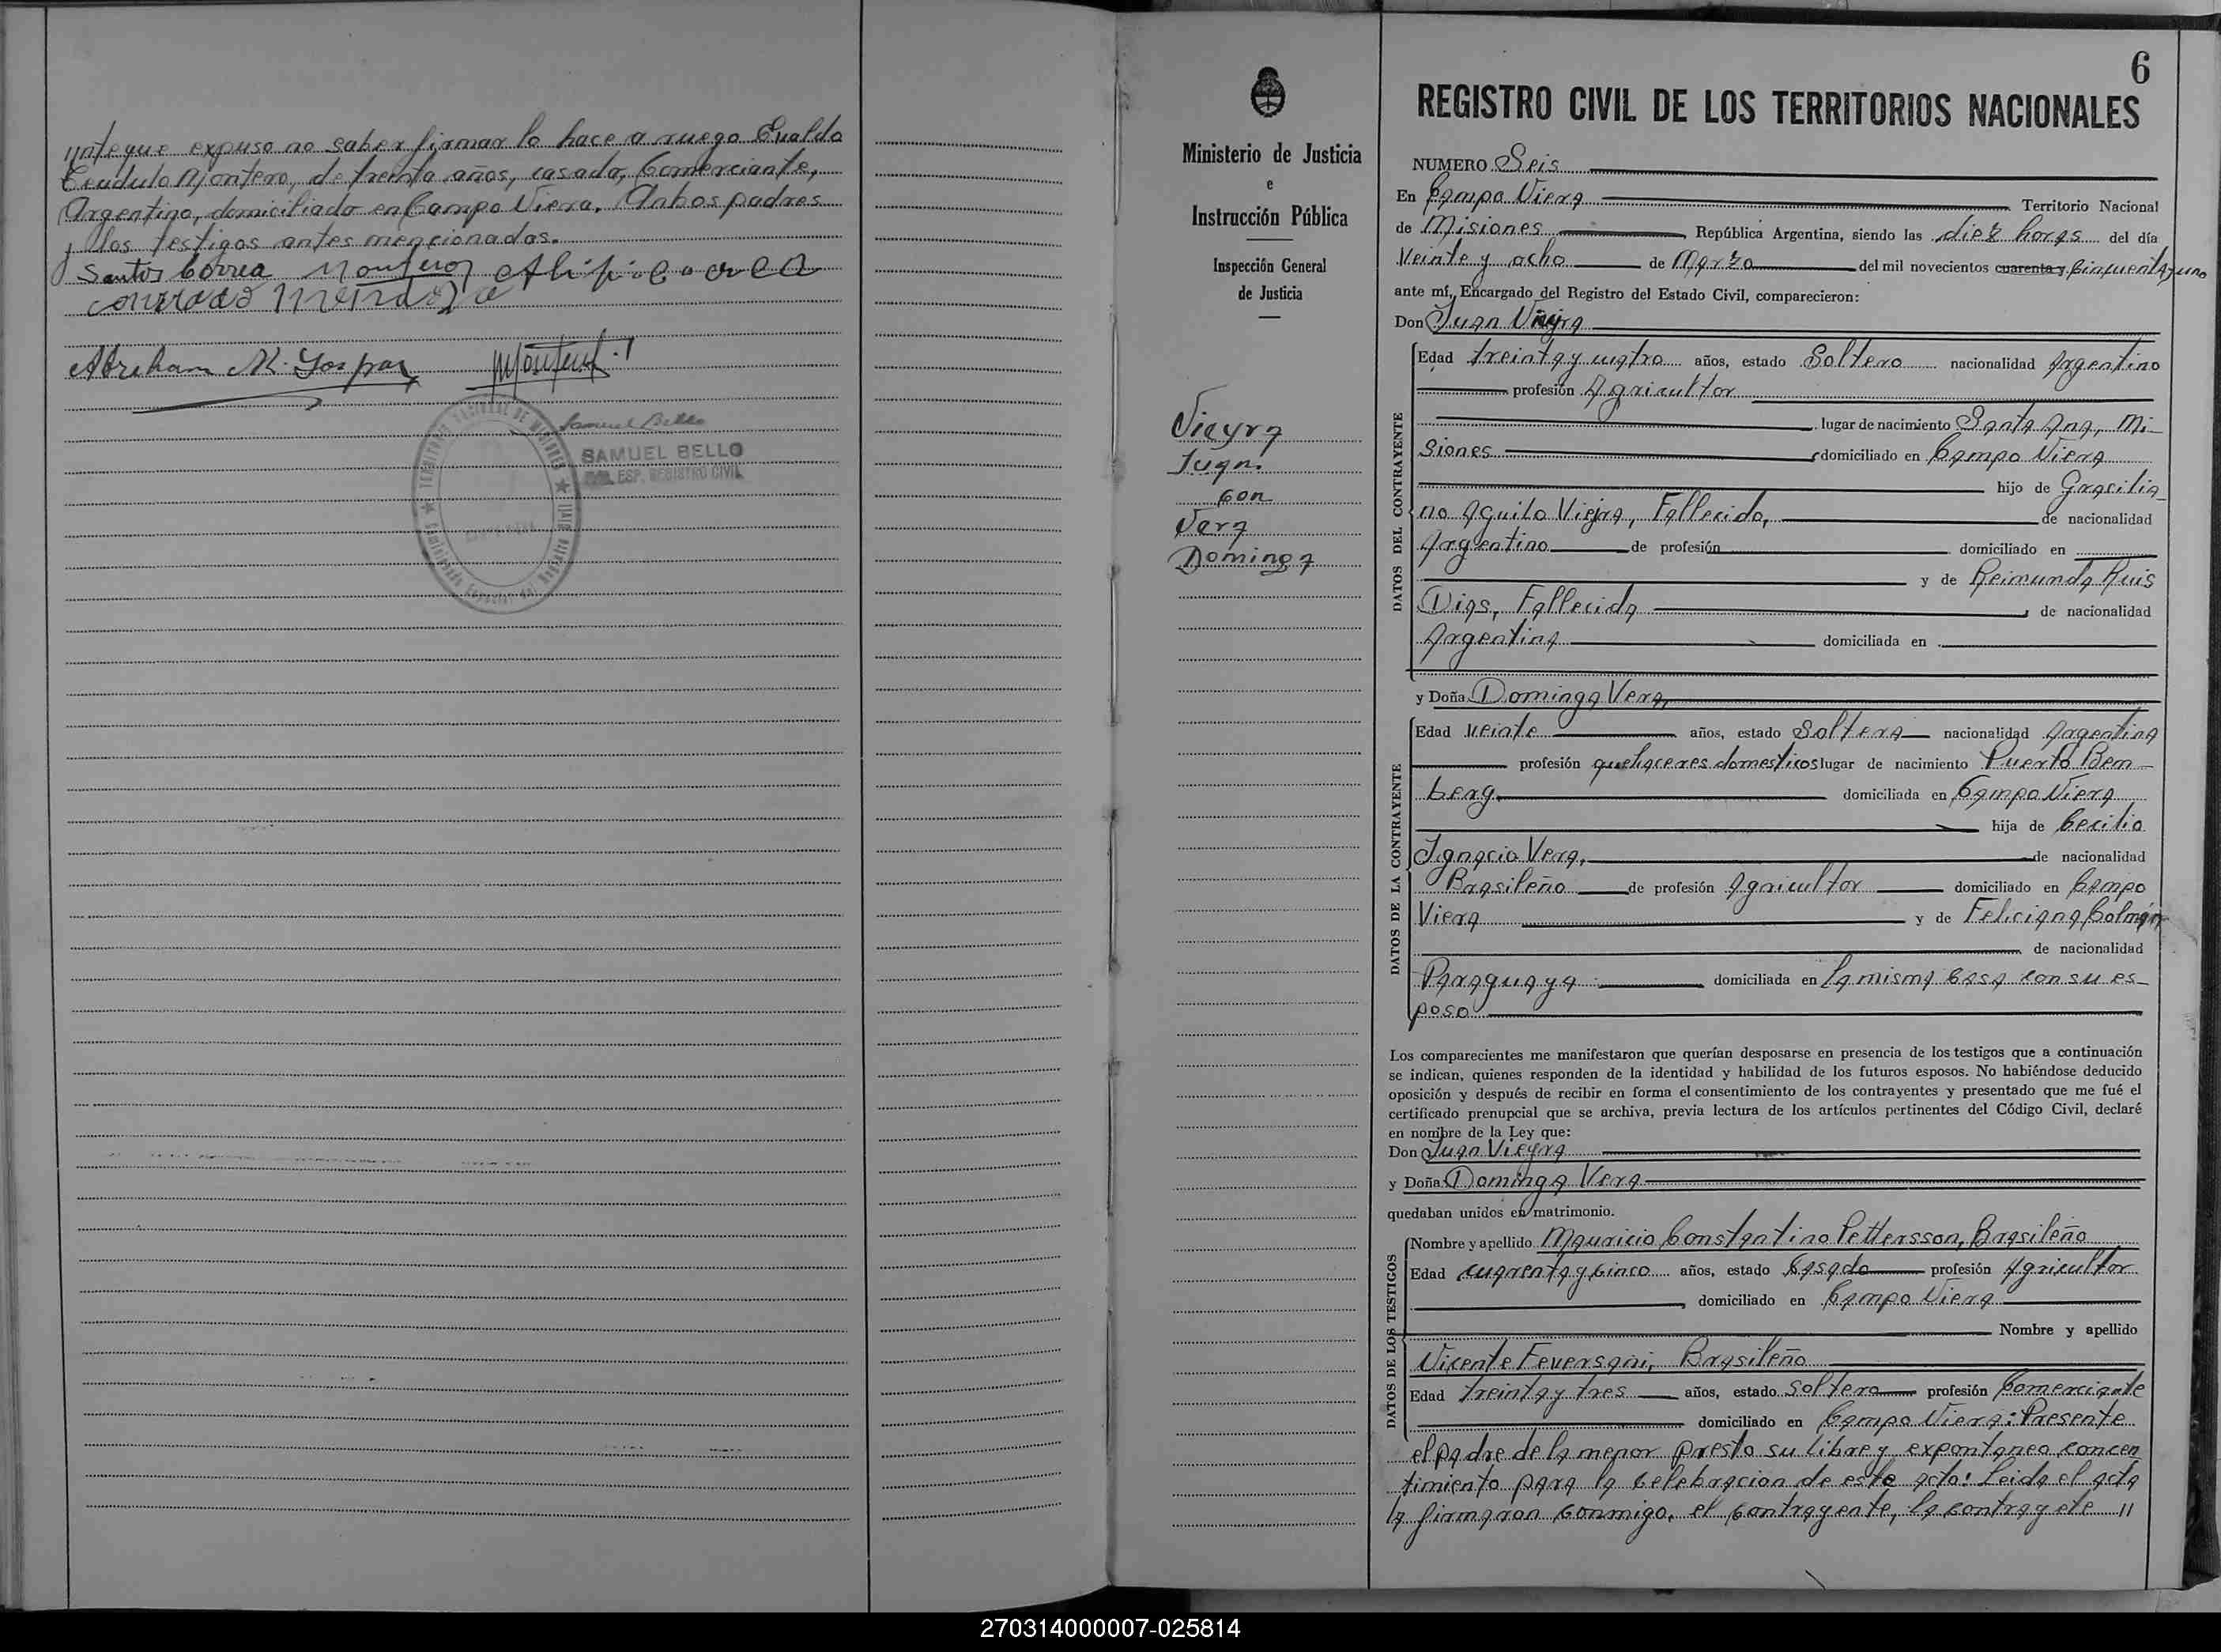 ynte que expuso no saber firmar lo hace a ruego Evaldo
Teudulo Montero, de treinta años, casado, Comerciante,
Argentino, domiciliado en Campo Viera. Anbos padres
y los testigos antes mencionados.
Santos Correa
Abraham M. Gospar
Samuel Bello
SAMUEL BELLO
ESP. REGISTRO CIVIL
Ministerio de Justicia
e
Instrucción Pública
Inspección General
de Justicia
Vieyra
Juan
con
Vera
Dominga
6
REGISTRO CIVIL DE LOS TERRITORIOS NACIONALES
NUMERO Seis
En Campo Viera Territorio Nacional
de Misiones República Argentina, siendo las diez horas del día
Veinte y ocho de Marzo del mil novecientos cuarenta y Cincuenta y uno
ante mí, Encargado del Registro del Estado Civil, comparecieron:
Don Juan Vieyra
DATOS DEL CONTRAYENTE
Edad treinta y cuatro años, estado Soltero nacionalidad Argentino
profesión Agricultor
lugar de nacimiento Santa Ana, Mi-
siones domiciliado en Campo Viera
hijo de Gracilia-
no Aguilo Vieyra, Fallecido, de nacionalidad
Argentino de profesión domiciliado en
y de Reimunda Ruis
Dias, Fallecida de nacionalidad
Argentina domiciliada en
y Doña Dominga Vera,
DATOS DE LA CONTRAYENTE
Edad veinte años, estado Soltera nacionalidad Argentina
profesión quehaceres domesticos lugar de nacimiento Puerto Bem-
berg. domiciliada en Campo Viera
hija de Cecilio
Ignacio Vera, de nacionalidad
Brasileño de profesión Agricultor domiciliado en Campo
Viera y de Feliciana Colmán
de nacionalidad
Paraguaya domiciliada en la misma casa con su es-
poso
Los comparecientes me manifestaron que querían desposarse en presencia de los testigos que a continuación
se indican, quienes responden de la identidad y habilidad de los futuros esposos. No habiéndose deducido
oposición y después de recibir en forma el consentimiento de los contrayentes y presentado que me fué el
certificado prenupcial que se archiva, previa lectura de los artículos pertinentes del Código Civil, declaré
en nombre de la Ley que:
Don Juan Vieyra
y Doña Dominga Vera
quedaban unidos en matrimonio.
DATOS DE LOS TESTIGOS
Nombre y apellido Mauricio Constantino Pettersson, Brasileño
Edad cuarenta y cinco años, estado Casado profesión Agricultor
domiciliado en Campo Viera
Nombre y apellido
Vicente Feversani, Brasileño
Edad treinta y tres años, estado soltero profesión Comerciante
domiciliado en Campo Viera: Presente
el padre de la menor presto su libre y expontaneo concen
timiento para la celebracion de este acto: Leida el acta
la firmaron conmigo, el contrayente, la contrayete "
270314000007-025814